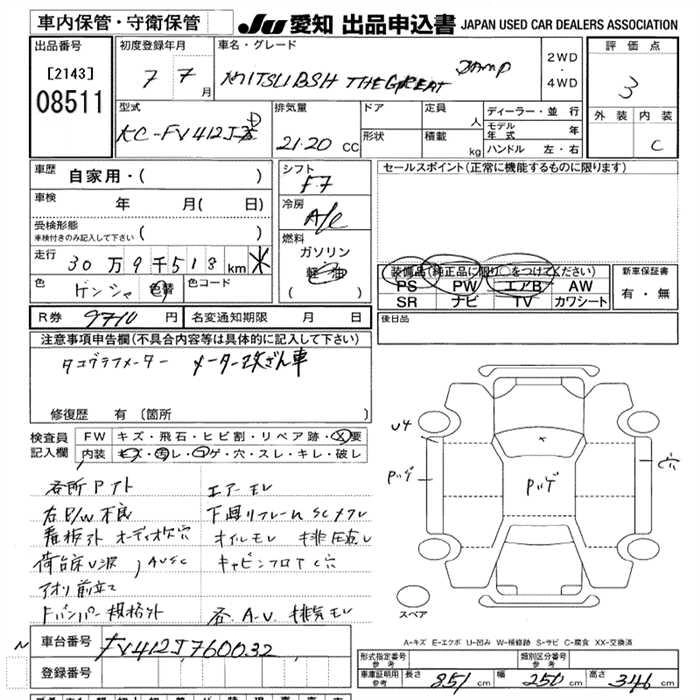 車内保管・守衛保管
JU 愛知 出品申込書 JAPAN USED CAR DEALERS ASSOCIATION
出品番号
[2143]
08511
初度登録年月
7 7 月
車名・グレード
MITSUBISH THE GREAT DUMP
2WD
・
4WD
評価点
3
外装 内装
C
型式
KC-FV412J改 D
排気量
21.20 cc
ドア
形状
定員 人
積載 kg
ディーラー・並行
モデル年式 年
ハンドル 左・右
車歴 自家用・( )
車検 年 月( 日)
受検形態
車検付きのみ記入して下さい ( )
走行 30万9千518km ※
色 ゲンシャ 色替 色コード
シフト
F7
冷房
A/C
燃料
ガソリン
軽油
( )
セールスポイント(正常に機能するものに限ります)
装備品(純正品に限り○をつけてください)
PS PW エアB AW
SR ナビ TV カワシート
新車保証書
有・無
R券 9710 円
名変通知期限 月 日
後日品
注意事項申告欄(不具合内容等は具体的に記入して下さい)
タコグラフメーター メーター改ざん車
修復歴 有 (箇所
検査員
記入欄
FW キズ・飛石・ヒビ割・リペア跡・X要
内装 キズ・汚レ・コゲ・穴・スレ・キレ・破レ
各所Pヌケ エアーモレ
右B/W不良 下廻リフレームSCメクレ
看板外 オーディオ欠穴 オイルモレ
荷台床U波 AVSC キャビンフロアC穴
アオリ前立て
FバンパーA
排気モレ
U4
Pハゲ
Pハゲ
C穴
スペア
A-キズ E-エクボ U-凹み W-補修跡 S-サビ C-腐食 XX-交換済
車台番号 FV412J760032
登録番号
形式指定番号
参考
類別区分番号
参考
車庫証明用
参考
長さ 851 cm 幅 250 cm 高さ 346 cm